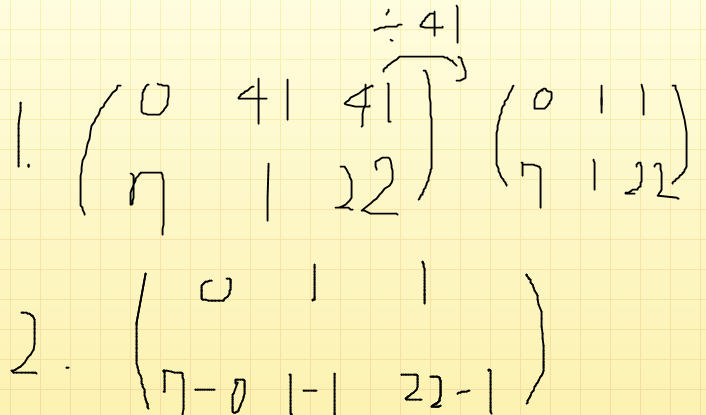 ÷ 41
1. ( 0 41 41 ) ( 0 1 1 )
( 7 1 22 ) ( 7 1 22 )
2. ( 0 1 1 )
( 7-0 1-1 22-1 )